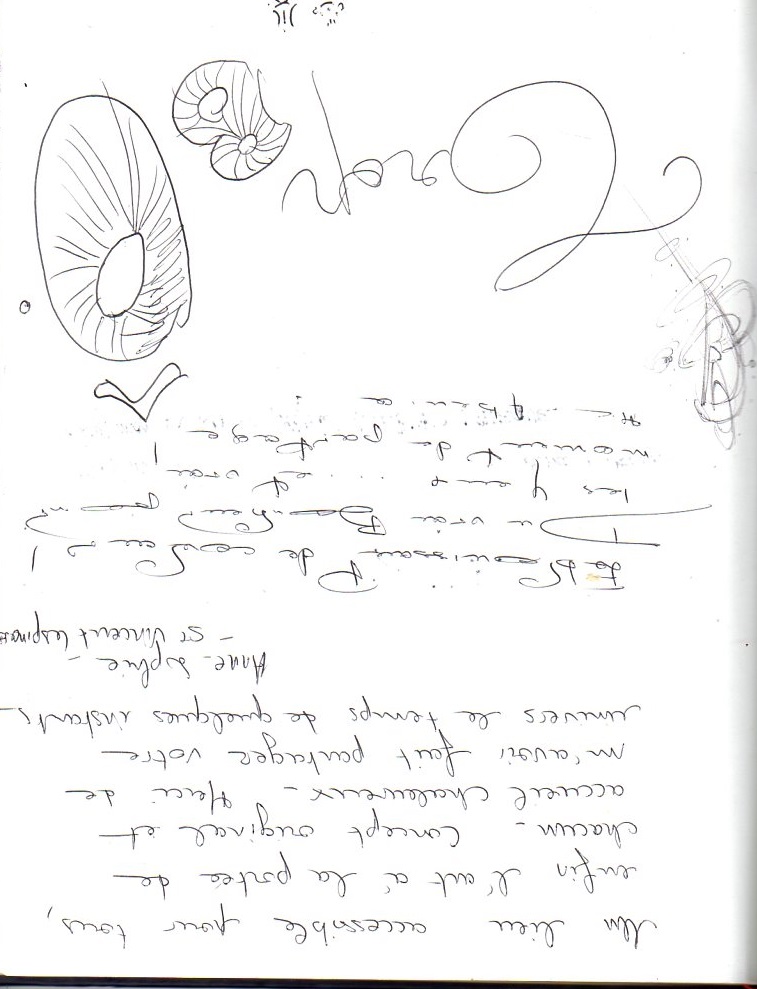 Un lieu accessible pour tous,
enfin l'art à la portée de
chacun - concept original et
accueil chaleureux - Merci de
m'avoir fait partager votre
univers le temps de quelques instants -
Anne-Sophie -
- St Vincent Lespinasse
de couleurs !
Un vrai Bonheur pour
les yeux ... et vrai
moment de partage !